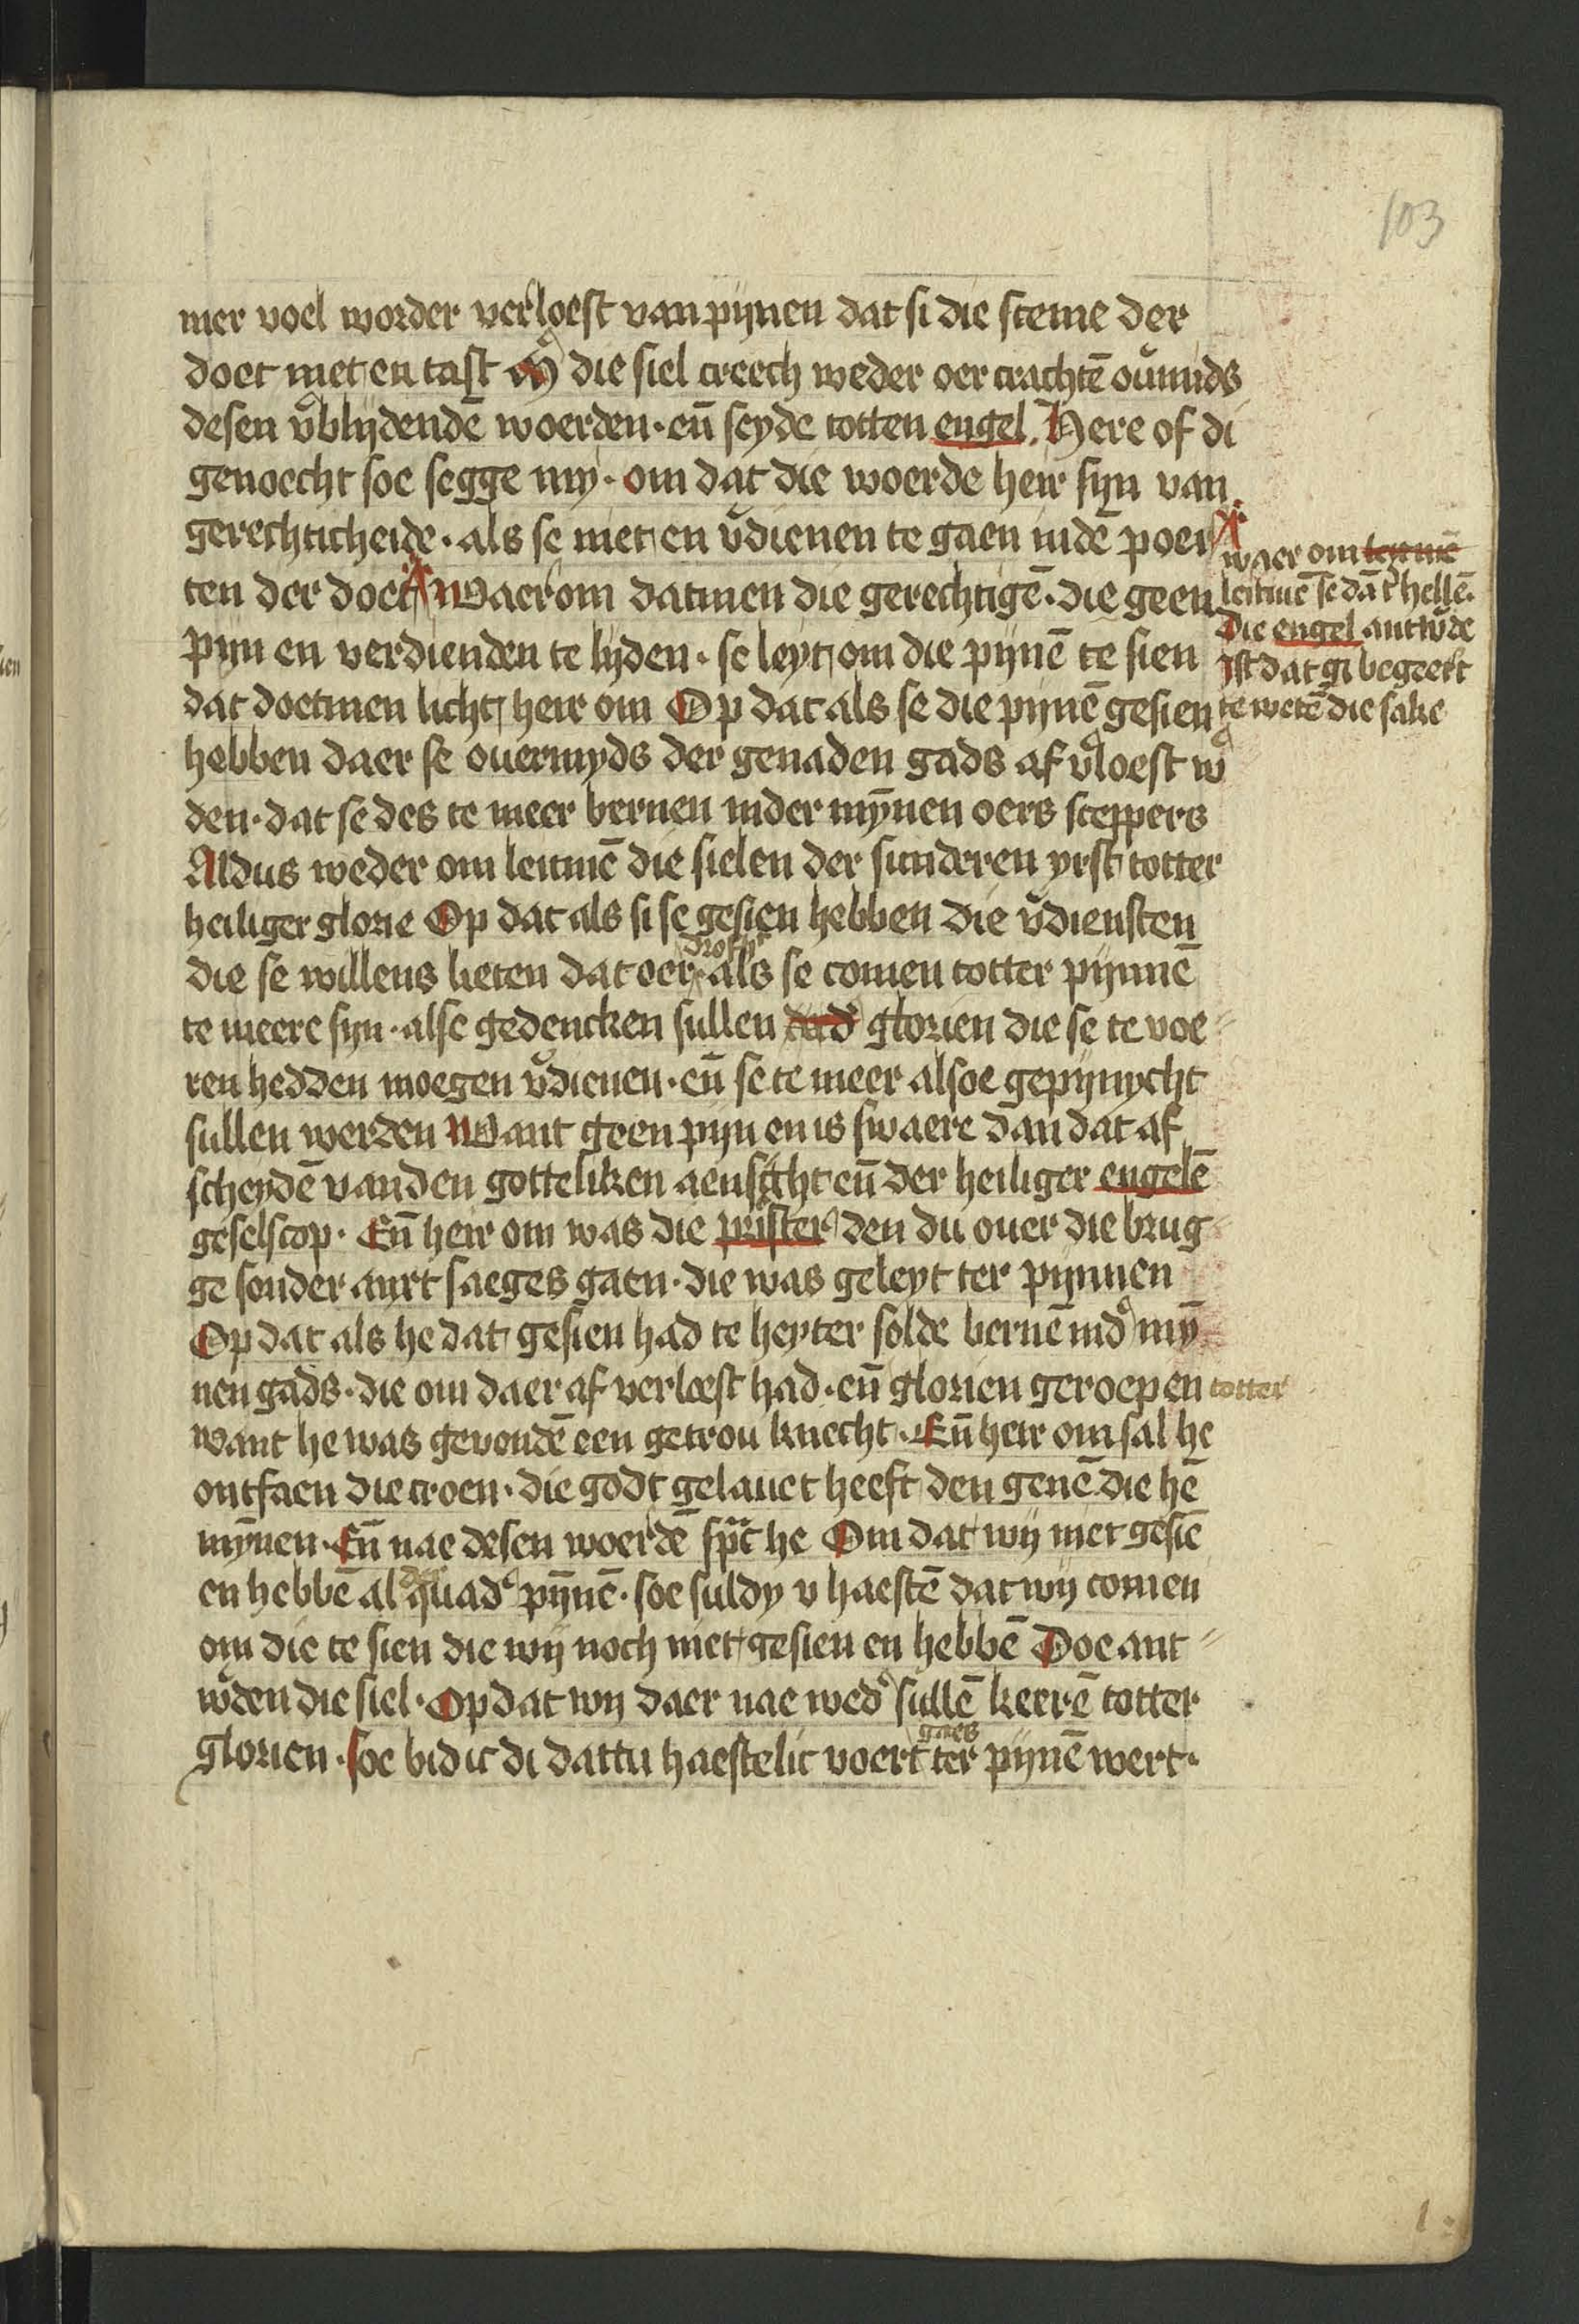 103
mer voel worder verloest van pijnen dat si die steme der
doet niet en tast die siel creech weder oer crachtē ouͥmids
desen vͦblijdendē woerden · eñ seyde totten engel . Here of di
genoecht soe segge my · om dat die woerde heir sijn van
gerechticheide · als se niet en vͦdienen te gaen indē poer
ten der doet Waer om datmen die gerechtigē · die geen
waer om leitmē
leitmē se dā t hellē .
Die engel antwͦde
Ist dat gi begeert
te wetē die sake
pijn en verdienden te lijden · se leyt om die pijnē te sien
dat doetmen licht heir om Op dat als se die pijnē gesien
hebben daer se ouermyds der genaden gads af vͦloest wͦ
den · dat se des te meer bernen inder mȳnen oers sceppers
Aldus weder om leitmē die sielen der sunderen yrst totter
heiliger glorie Op dat als si se gesien hebben die vͦdiensten
die se willens lieten dat oer als se comen totter pijnnē
te meere sijn · alse gedencken sullen glorien die se te voe
ren hedden moegen vͦdienen · eñ se te meer alsoe gepijnycht
sullen werden Want geen pijn en is swaere dan dat af
scheydē van den gotteliken aensicht eñ der heiliger engelē
geselscop · Eñ heir om was die prister den du ouer die brug
ge sonder anxt saeges gaen · die was geleyt ter pijnnen
Op dat als he dat gesien had te heyter solde bernē indͦ mȳ
nen gads · die om daer af verloest had · eñ glorien geroepen totter
want he was gevondē een getrou knecht · Eñ heir om sal he
ontfaen die croen · die godt gelauet heeft den genē die hē
mȳnen · Eñ nae desen woerdē sprac he Om dat wij niet gesiē
en hebbē al der quadͤ pȳnē · soe suldy v haestē dat wij comen
om die te sien die wij noch niet gesien en hebbē Doe ant
wͦden die siel · Op dat wij daer nae wedͦ sullē keerē totter
glorien · soe bid ic di dattu haestelic voert gaes ter pijnē wert ·